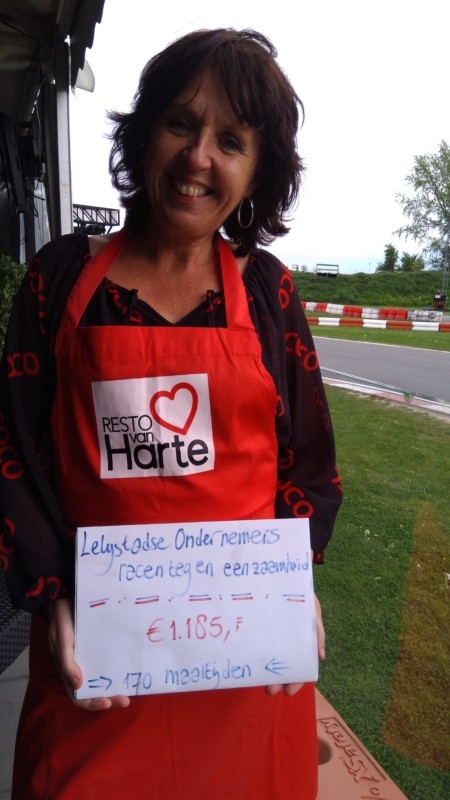 RESTO
van
Harte
Lelystadse Ondernemers
racen tegen eenzaamheid
€ 1.185,=
=> 170 maaltijden <=